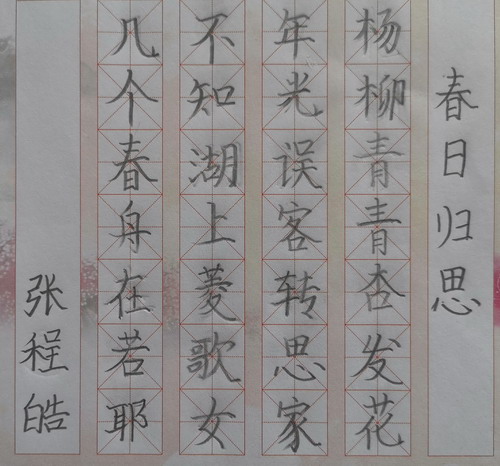 春日归思
杨柳青青杏发花
年光误客转思家
不知湖上菱歌女
几个春舟在若耶
张程皓